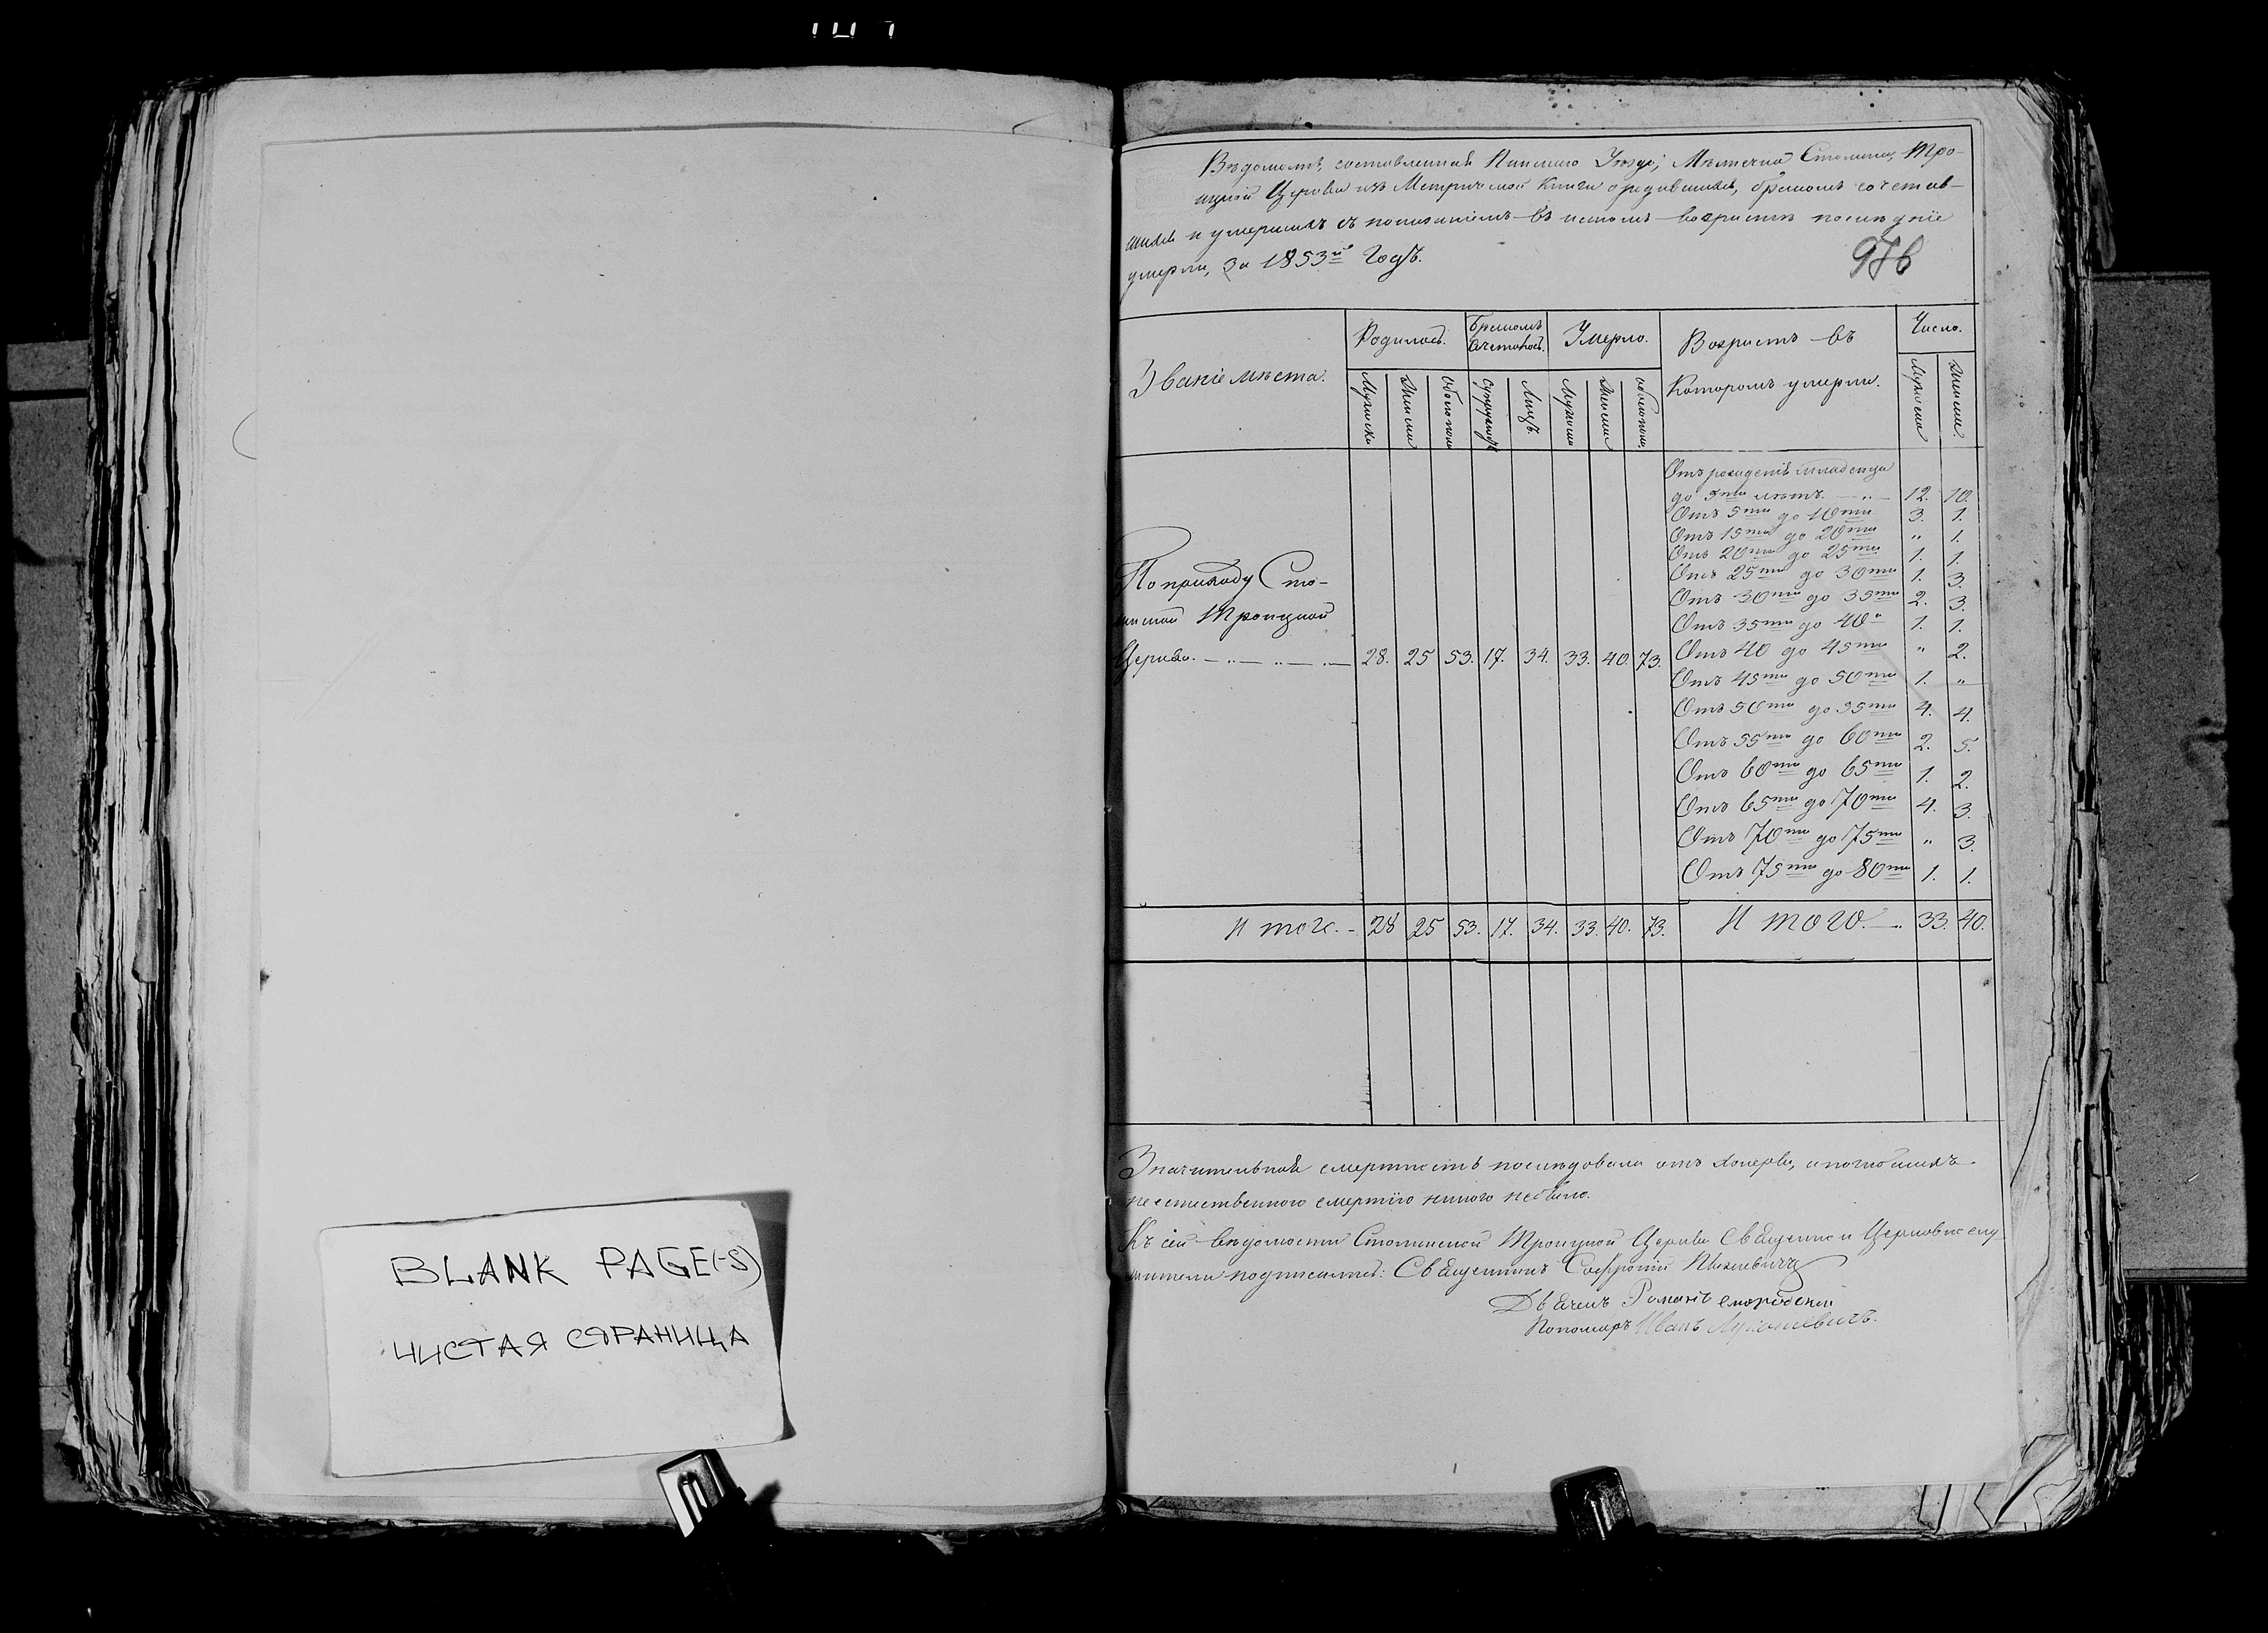 BLANK PAGE(-S)
ЧИСТАЯ СТРАНИЦА
Вѣдомость, составленная Пинскаго Уѣзда, Мѣстечка Столина, Тро-
ицкой Церкви изъ Метрической Книги о родившихся, бракомъ сочетав-
шихся и умершихъ съ показаніемъ въ какомъ возрастѣ послѣдніе
умерли, За 1853й Годъ.
976
Званіе мѣста.
Родилось.
Бракомъ Сочеталось.
Умерло.
Возрастъ въ Которомъ умерли.
Число.
Мужеска
Женска
Обоего пола
Супружествъ
Лицъ
Мужеска
Женска
обоего пола
Мужеска
Женска.
Отъ рожденія младенца
до 5ти лѣтъ. — „ — 12. 10.
Отъ 5ти до 10ти 3. 1.
Отъ 15ти до 20ти „ 1.
Отъ 20ти до 25ти 1. 1.
Отъ 25ти до 30ти 1. 3.
Отъ 30ти до 35ти 2. 3.
Отъ 35ти до 40а 1. 1.
По приходу Сто-
линской Троицкой
Церкви. — „ — „ — „ — 28. 25 53. 17. 34. 33. 40. 73.
Отъ 40 до 45ти „ 2.
Отъ 45ти до 50ти 1. „
Отъ 50ти до 55ти 4. 4.
Отъ 55ти до 60ти 2. 5.
Отъ 60ти до 65ти 1. 2.
Отъ 65ти до 70ти 4. 3.
Отъ 70ти до 75ти „ 3.
Отъ 75ти до 80ти 1. 1.
Итого. - 28 25 53. 17. 34. 33. 40. 73. Итого. —. 33. 40.
Значительная смертность послѣдовала отъ холеры, а погибшихъ
неестественною смертію никого небыло.
Къ сей вѣдомости Столинской Троицкой Церкви Священно и Церковнослу
жители подписались: Священникъ Софроній
Дьячекъ Романъ
Пономарь Иванъ